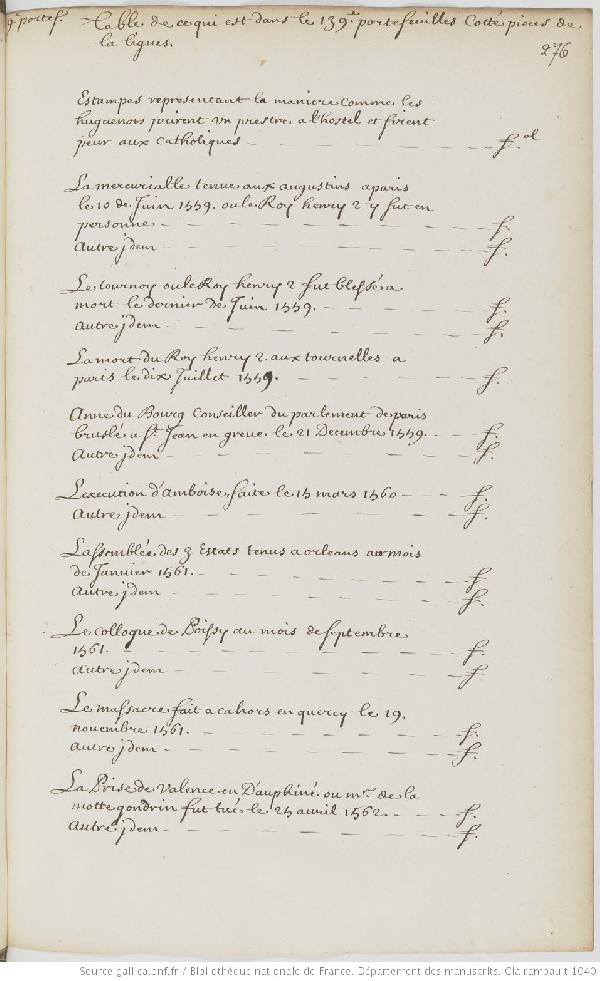 9.e portef.
Table de ce qui est dans le 139.e portefeuilles Cotté pieces de
la ligues.
276
Estampes representant la maniere comme les
huguenots prirent vn prestre a l'hostel et firent
peur aux Catholiques f. ol
La mercurialle tenue aux augustins a paris
le 10 de Juin 1559. ou le Roy henry 2 y fut en
personne f.
Autre jdem f.
Le tournoy ou le Roy henry 2 fut blessé a
mort le dernier de Juin 1559. f.
Autre jdem f.
La mort du Roy henry 2. aux tournelles a
paris le dix Juillet 1559. f.
Anne du Bourg Conseiller du parlement de paris
bruslé a St. Jean en greue. le 21 Decembre 1559. f.
Autre jdem f.
L'execution d'amboise faite le 15 mars 1560 f.
Autre jdem f.
L'assemblée des 3 Estats tenus a orleans au mois
de Janvier 1561. f.
Autre jdem f.
Le colloque de Poissy au mois de septembre
1561. f.
Autre jdem f.
Le massacre fait a cahors en quercy le 19.
novembre 1561. f.
Autre jdem f.
La Prise de Valence en Dauphiné ou mr. de la
motte gondrin fut tué le 25 avril 1562. f.
Autre jdem f.
Source gallica.bnf.fr / Bibliothèque nationale de France. Département des manuscrits. Clairambault 1040